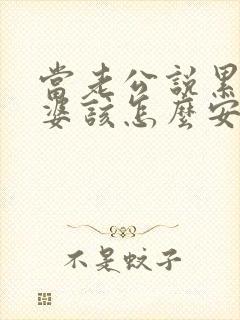 當老公說累
婆該怎麼安
不是蚊子